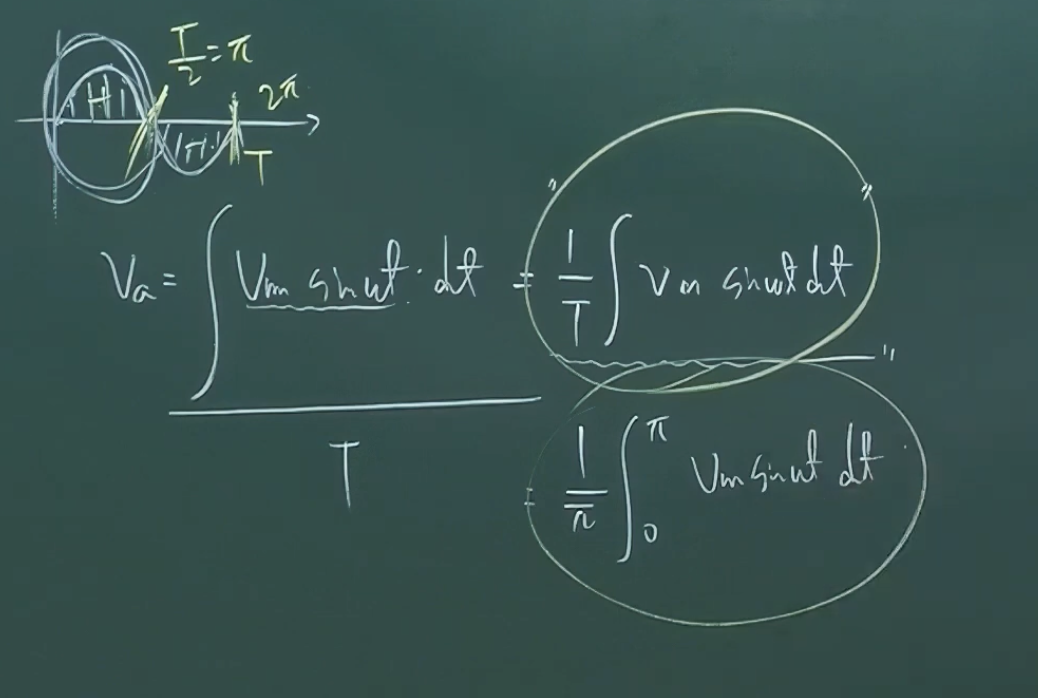 T/2 = π
2π
(+)
(+)
T
Va = ∫ Vm sinωt · dt / T = 1/T ∫ Vm sinωt dt
= 1/π ∫₀^π Vm sinωt dt